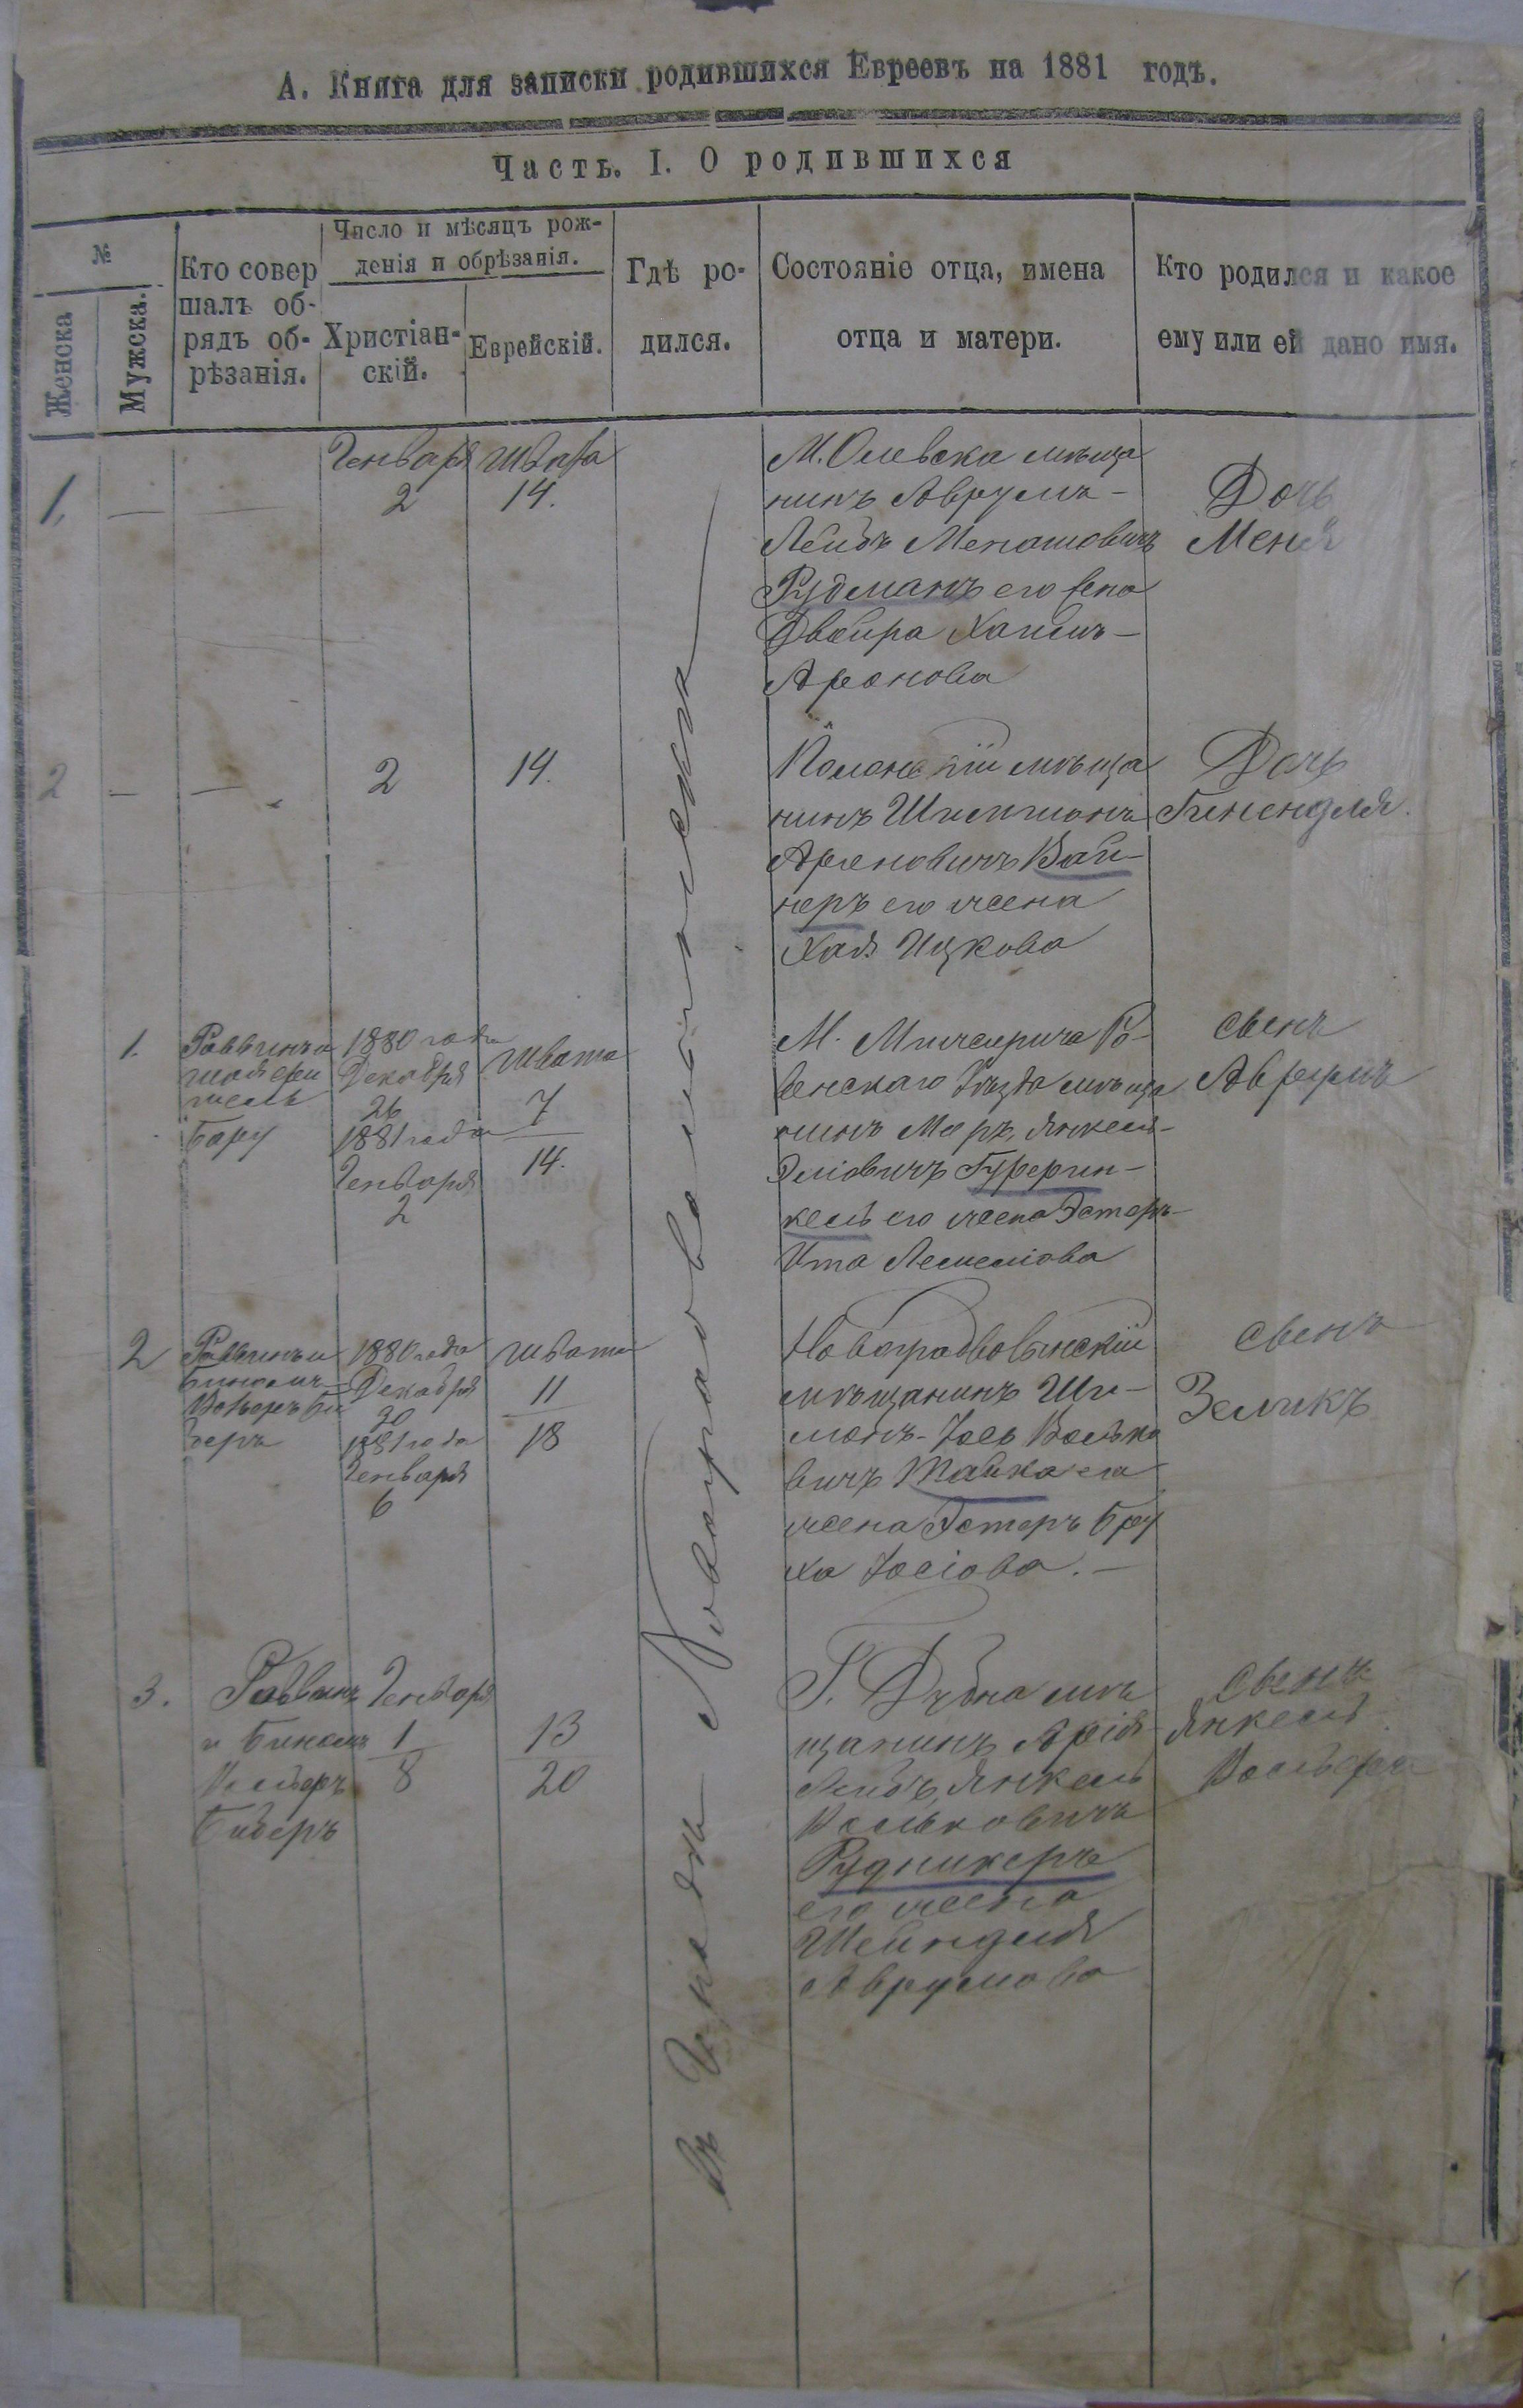 А. Книга для записки родившихся Евреевъ на 1881 годъ.
Часть. I. О родившихся
№
Женска
Мужска.
Кто совер
шалъ об-
рядъ об-
рѣзанія.
Число и мѣсяцъ рож-
денія и обрѣзанія.
Христіан-
скій.
Еврейскій.
Гдѣ ро-
дился.
Состояніе отца, имена
отца и матери.
Кто родился и какое
ему или ей дано имя.
въ Новоградволынскѣ
1.
—
—
Генваря
2
Швата
14.
М. Олевска мѣща
нинъ Аврумъ-
Лейбъ Менашовичъ
Рудманъ его жена
Двойра Хаимъ-
Аронова
Дочь
Меня
2
—
—
2
14.
Полонскій мѣща
нинъ Шимшонъ
Ароновичъ Вай-
неръ его жена
Хая Ицкова
Дочь
Гинендля.
1.
Раввинъ и
Бару
1880 года
Декабря
26
1881 года
Генваря
2
Швата
7
14.
М. Межирича Ро-
венскаго Уѣзда мѣща
нинъ Меръ, Янкель-
Эліовичъ Гуферин-
кель его жена Эстеръ-
Ита Лемеліова
Сынъ
Аврумъ
2
Раввинъ и
Биномъ-
Вольеръ Би
деръ
1880 года
Декабря
30
1881 года
Генваря
6
Швата
11
18
Новоградволынскій
мѣщанинъ Ши-
монъ-Іось Волько
вичъ Тайха его
жена Эстеръ Бру
ха Іосіова.-
Сынъ
Зеликъ
3.
Раввинъ
и Биномъ
Вольеръ
Бидеръ
Генваря
1
8
13
20
Г. Дубна мѣ
щанинъ Арія-
Лейбъ, Янкель
Вольковичъ
Рудникеръ
его жена
Шейндля
Аврумова
Сынъ
Янкель
Вольеръ